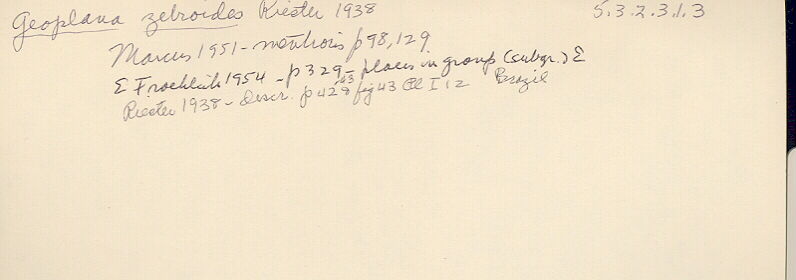 Geoplana zebroides Riester 1938 5.3.2.3.1.3
Marcus 1951 - mentions p 98, 129
E Froehlich 1954 - p 329 - places in group (subgr.) E
Riester 1938 - Descr. p 42 fig 43 Pl I 12 Brazil